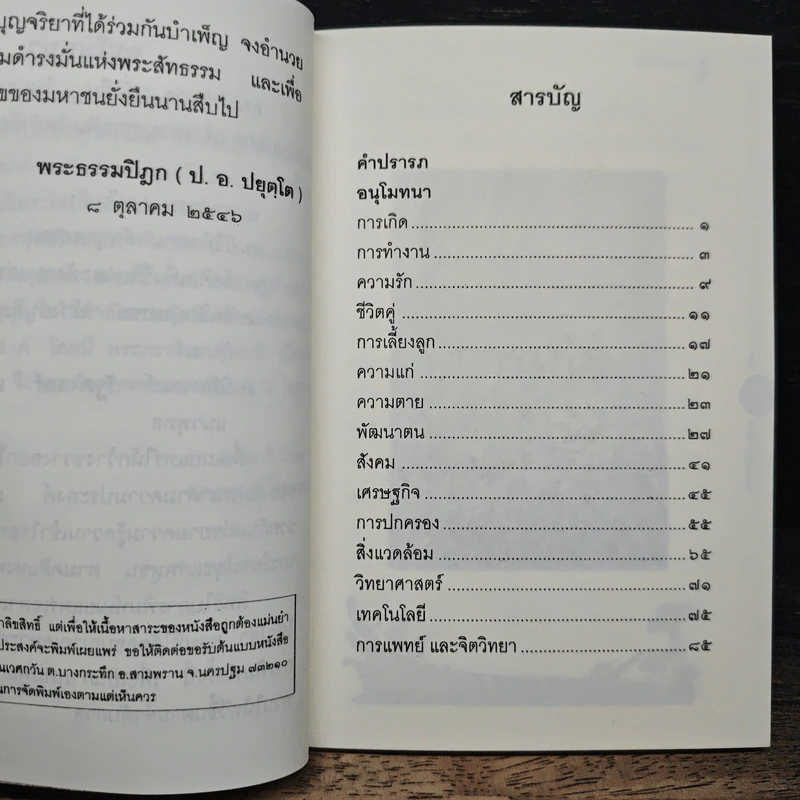 บุญจริยาที่ได้ร่วมกันบำเพ็ญ จงอำนวย
มดำรงมั่นแห่งพระสัทธรรม และเพื่อ
ขของมหาชนยั่งยืนนานสืบไป
พระธรรมปิฎก ( ป. อ. ปยุตฺโต )
๘ ตุลาคม ๒๕๔๖
าลิขสิทธิ์ แต่เพื่อให้เนื้อหาสาระของหนังสือถูกต้องแม่นยำ
ประสงค์จะพิมพ์เผยแพร่ ขอให้ติดต่อขอรับต้นแบบหนังสือ
นเวศกวัน ต.บางกระทึก อ.สามพราน จ.นครปฐม ๗๓๒๑๐
นการจัดพิมพ์เองตามแต่เห็นควร
สารบัญ
คำปรารภ
อนุโมทนา
การเกิด ๑
การทำงาน ๓
ความรัก ๙
ชีวิตคู่ ๑๑
การเลี้ยงลูก ๑๗
ความแก่ ๒๑
ความตาย ๒๓
พัฒนาตน ๒๗
สังคม ๔๑
เศรษฐกิจ ๔๕
การปกครอง ๕๕
สิ่งแวดล้อม ๖๕
วิทยาศาสตร์ ๗๑
เทคโนโลยี ๗๕
การแพทย์ และจิตวิทยา ๘๕